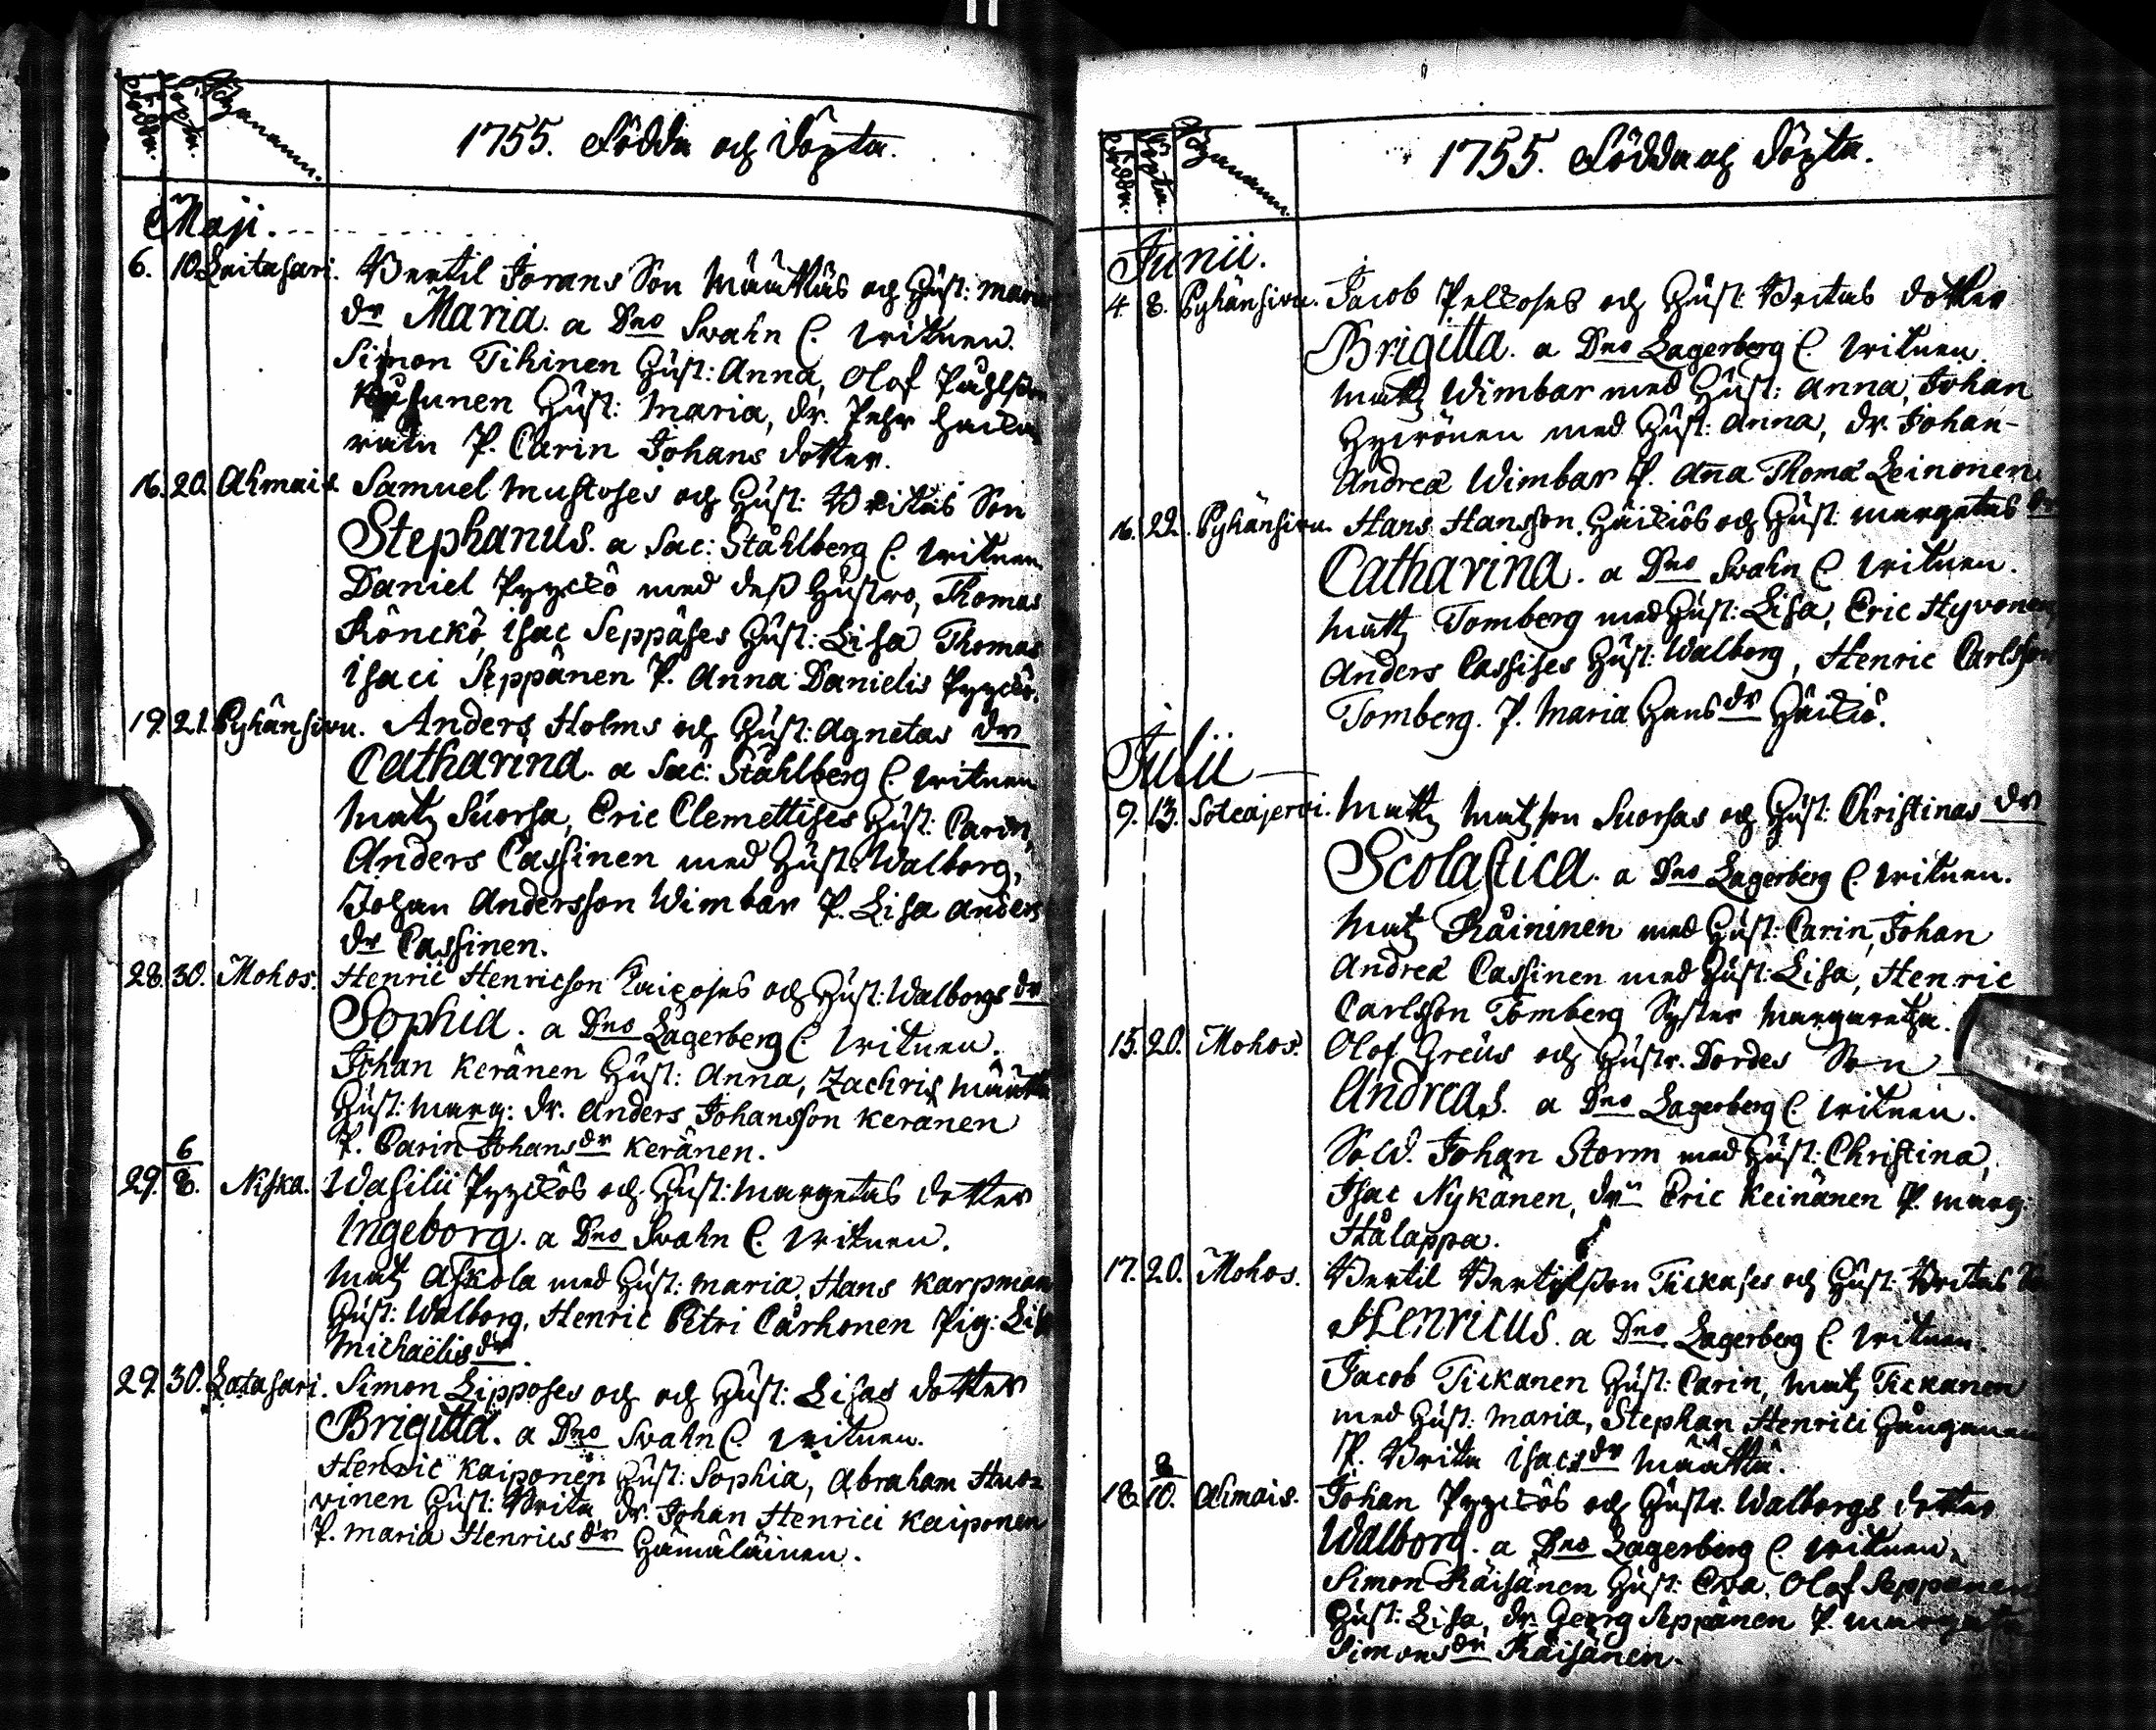 Födda. Döpta. Bÿanamn.
1755. Födda och Döpta.
Maji.
6. 10. Laitasari. Bertil Jorans Son Määttäs och Hust: Marias
dr Maria. a Dno Svahn C. vitnen.
Simon Tihinen Hust: Anna, Olof Påhlson
Hust: Maria, dr. Pehr
P. Carin Johans dotter.
16. 20. Ahmais. Samuel Mustoses och Hust: Britas Son
Stephanus. a Sac: Ståhlberg C. vitnen
Daniel Pyyckö med dess Hustro, Thomas
Rönckö, Isac Seppäses Hust: Lisa Thomas
Isaci Seppänen P. Anna Danielis Pyyckö.
19. 21. Pyhänsivu. Anders Holms och Hust: Agnetas dr
Catharina. a Sac: Ståhlberg C. vitnen
Matz Suorsa, Eric Clemettises Hust: Carin,
Anders Cassinen med Hust: Walborg,
Johan Andersson Wimbar P. Lisa Anders
dr Cassinen.
28. 30. Mohos. Henric Henricson Kaiposes och Hust: Walborgs dr
Sophia. a Dno Lagerberg C. vitnen.
Johan Keränen Hust: Anna, Zachris Määttä
Hust: Marg: dr. Anders Johansson Keränen
P. Carin Johans dr Keränen.
29. 6/8. Niska. Wasilii Pyyckös och Hust: Margetas dotter
Ingeborg. a Dno Svahn C. vitnen.
Matz Askola med Hust: Maria, Hans Karpman
Hust: Walborg, Henric Petri Cärhonen Pig: Lis
Michaëlis dr.
29. 30. Laitasari. Simon Lipposes och och Hust: Lisas dotter
Brigitta. a Dno Svahn C. vitnen.
Henric Kaiponen Hust: Sophia, Abraham Huo=
vinen Hust: Brita dr. Johan Henrici Kaiponen
P. Maria Henrics dr Hämäläinen.
Födda. Döpta. Bÿanamn.
1755. Födda och Döpta.
Junii.
4. 8. Pyhänsivu. Jacob Pelckoses och Hust: Britas dotter
Brigitta. a Dno Lagerberg C. vitnen.
Matz Wimbar med Hust: Anna, Johan
Hyvönen med Hust: Anna, dr. Johan-
Andreæ Wimbar P. Anna Thomæ Leinonen.
16. 22. Pyhänsivu. Hans Hansson Häickiös och Hust: Margetas dr
Catharina. a Dno Svahn C. vitnen.
Matz Tomberg med Hust: Lisa, Eric Hyvönen,
Anders Cassises Hust: Walborg, Henric Carlsson
Tomberg. P. Maria Hans dr Häickiö.
Julii
9. 13. Soteajervi. Matz Matzson Suorsas och Hust: Christinas dr
Scolastica. a Dno Lagerberg C. vitnen.
Matz Räininen med Hust: Carin, Johan
Andreæ Cassinen med Hust: Lisa, Henric
Carlsson Tomberg Syster Margaretha.
15. 20. Mohos. Olof Greüs och Hustr. Dordes Son
Andreas. a Dno Lagerberg C. vitnen.
Sold. Johan Storm med Hust: Christina,
Isac Nykänen, drn Eric Keinänen P. Marg:
Hålappa.
17. 20. Mohos. Bertil Bertilsson Tickases och Hust: Britas Son
Henricus. a Dno Lagerberg C. vitnen.
Jacob Tickanen Hust: Carin, Matz Tickanen
med Hust: Maria, Stephan Henrici
P. Brita Isacs dr Määttä.
18. 8/10. Ahmais. Johan Pyyckös och Hustr. Walborgs dotter
Walborg. a Dno Lagerberg C. vitnen.
Simon Räisänen Hust: Eva, Olof Seppänen
Hust: Lisa, dr. Georg Seppänen P. Margeta
Simons dr Räisänen.